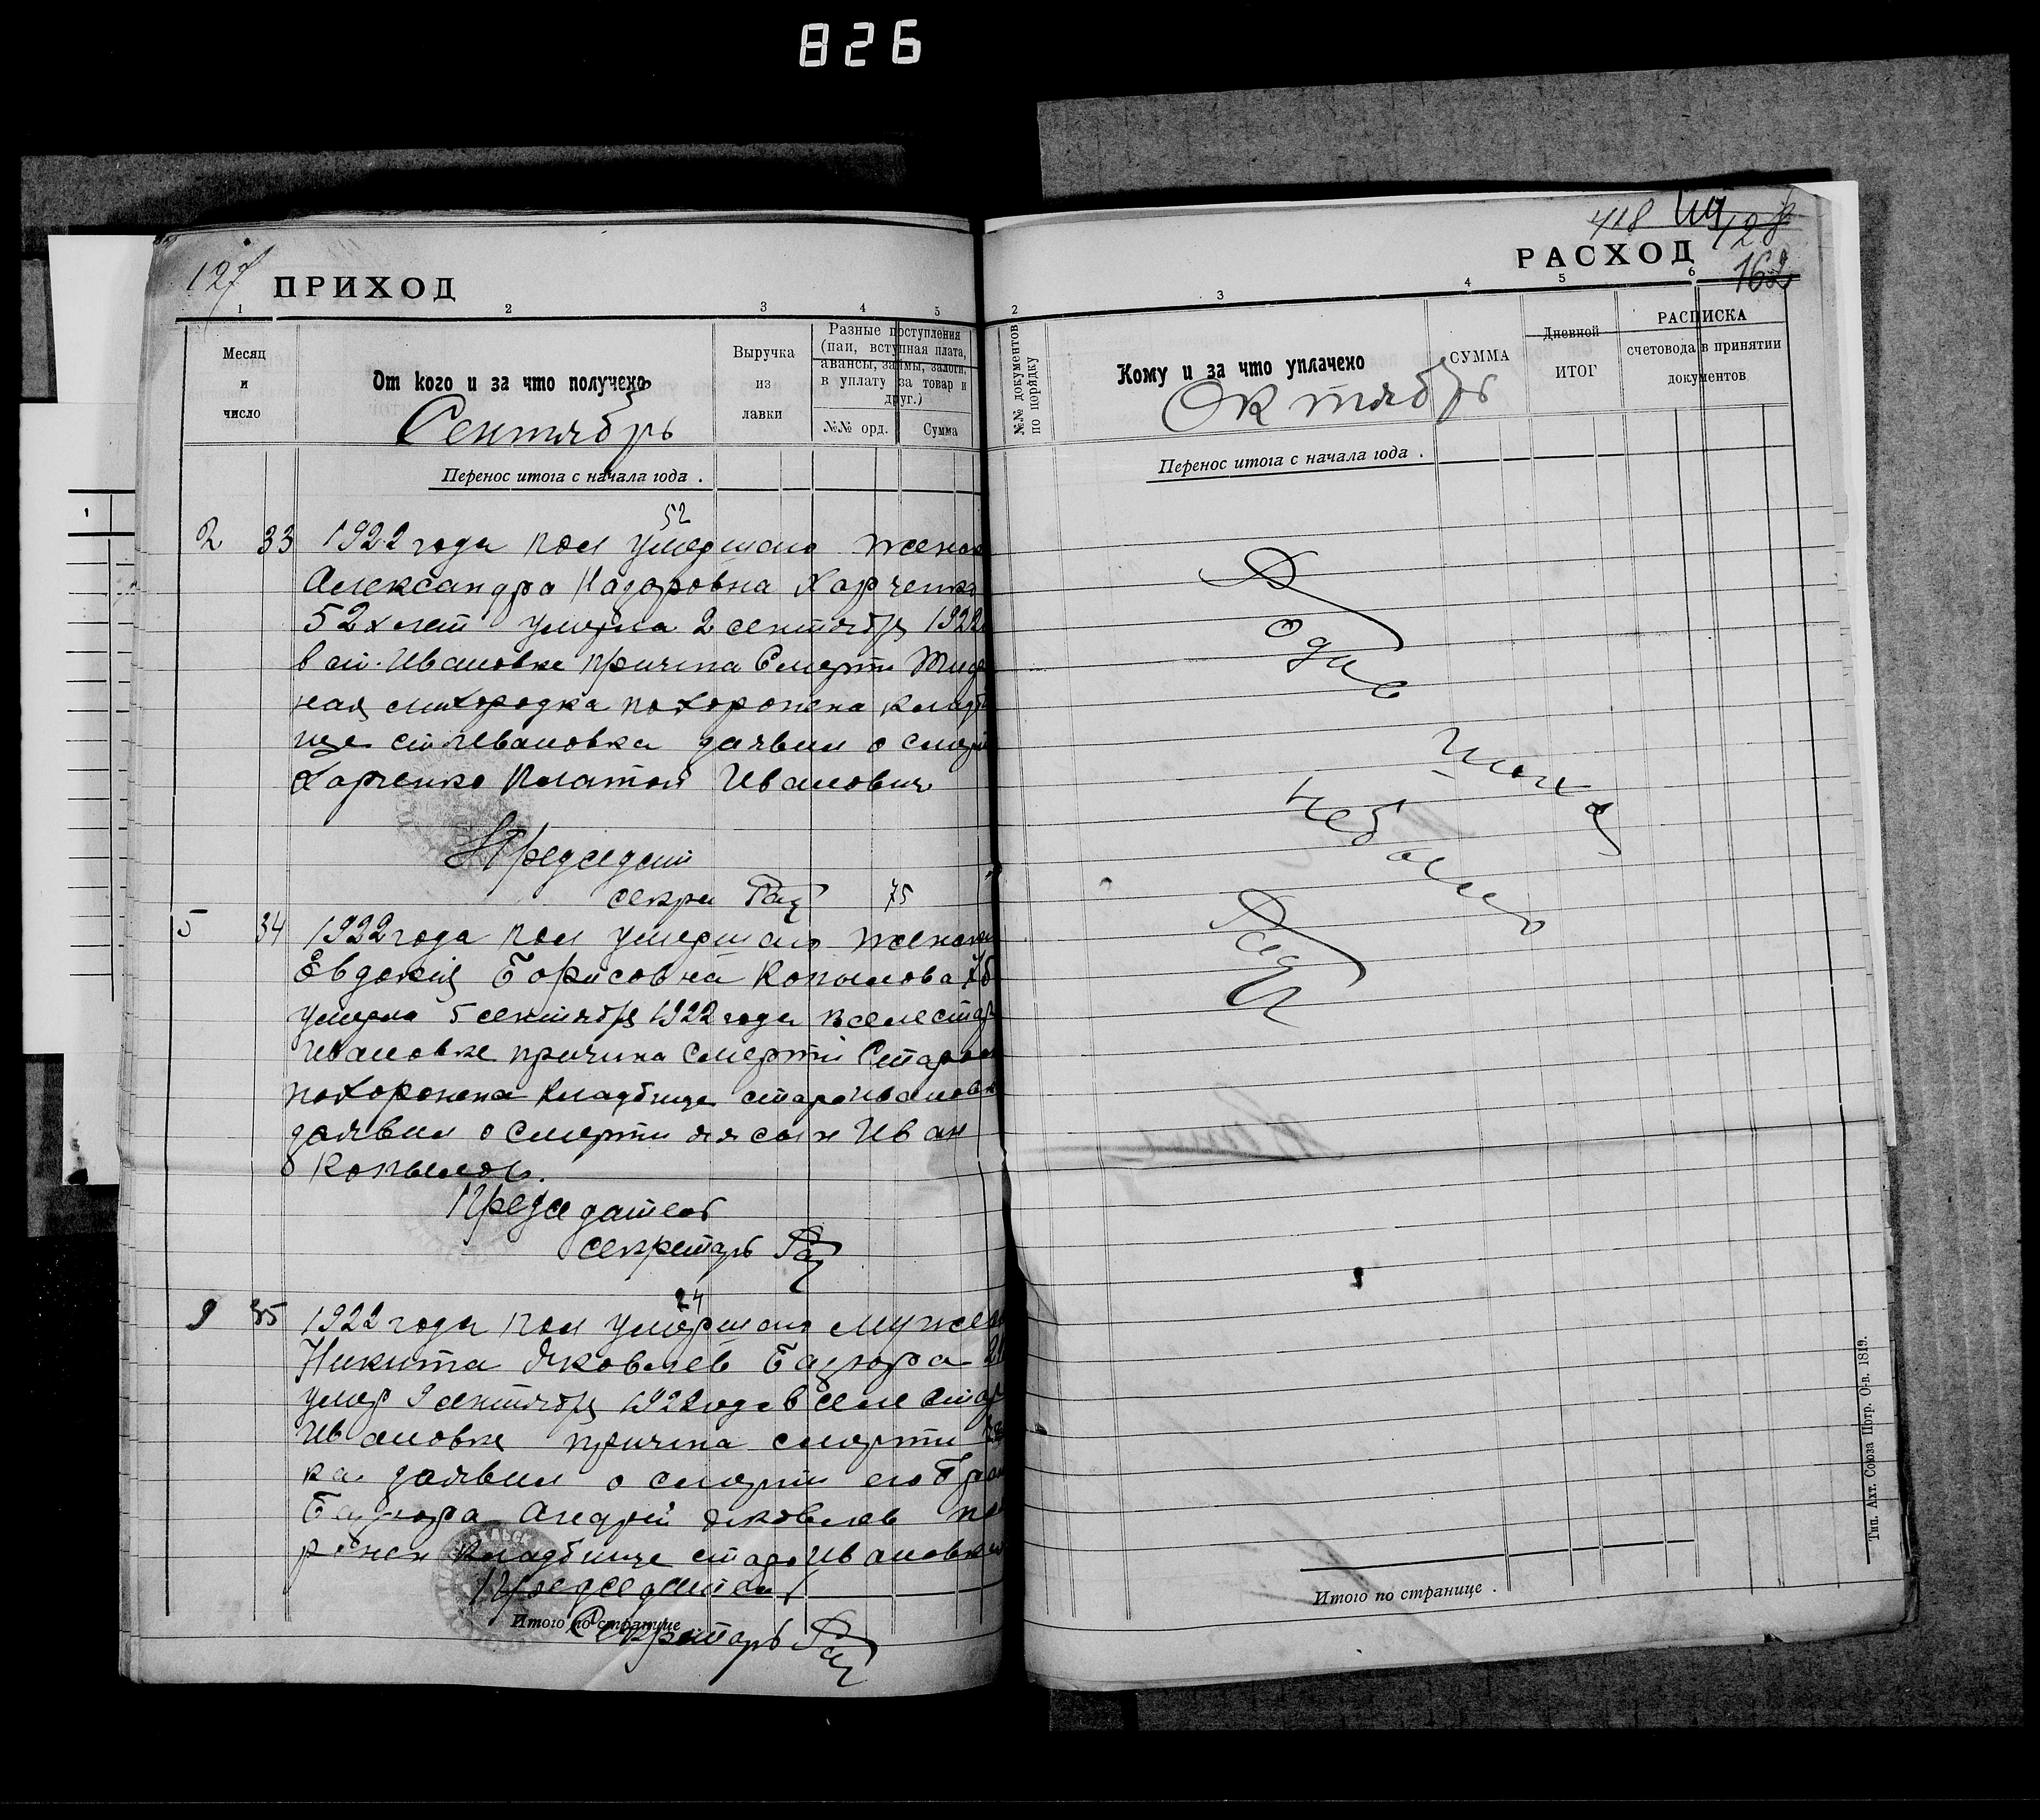 826
127
ПРИХОД
1 2 3 4 5
Месяц и число
От кого и за что получено
Выручка из лавки
Разные поступления (паи, вступная плата, авансы, займы, залоги, в уплату за товар и друг.)
№№ орд. Сумма
Сентябрь
Перенос итога с начала года .
52
2 33 1922 года пол умершаго женск
Александра Назаровна Харченко
52х лет умерла 2 сентября 1922
в ст. Ивановке причина смерти
ная лихородка похоронена кладб
ище ст Ивановка заявил о смерт
Харченко Платон Иванович
Председат
секрет
75
5 34 1922 года пол умершаго женск
Евдокия Борисовна Копылова 75
умерла 5 сентября 1922 года в селе стар
Ивановке причина смерти Старос
похоронена кладбище старо Ивановк
заявил о смерти ея сын Иван
Копылов.
Председатель
секретарь
24
9 35 1922 года пол умершаго мужск
Никита Яковлев Бацюра 24
умер 9 сентября 1922 года в селе Стар
Ивановке причина смерти
ка заявил о смерти его брат
Бацюра Андрей Яковлев по
ронен кладбище старо Ивановке
Председатель
Итого по странице
Секретарь
418 128
162
РАСХОД
2 3 4 5 6
№№ документов по порядку
Кому и за что уплачено
СУММА
Дневной ИТОГ
РАСПИСКА счетовода в принятии документов
Октябрь
Перенос итога с начала года .
небыло
Итого по странице .
Тип. Ахт. Союза Потр. О-в. 1819.